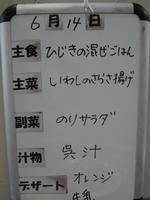 6月14日
主食 ひじきの混ぜごはん
主菜 いわしのさらさ揚げ
副菜 のりサラダ
汁物 呉汁
デザート オレンジ
牛乳